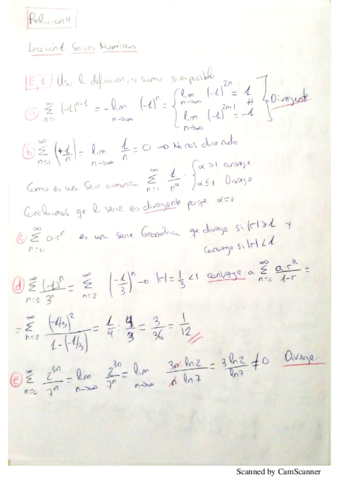 Relacion 4
Leccion 1. Series Numericas
Ej 1 Usar la definicion y sumar si es posible
a) ∑_{n=1}^{∞} (-1)^{n+1} = -lim_{n→∞} (-1)^n = { lim_{n→∞} (-1)^{2n} = 1 ≠ lim_{n→∞} (-1)^{2n+1} = -1 ] Divergente.
b) ∑_{n=1}^{∞} (+1/n) = lim_{n→∞} 1/n = 0 → No nos dice nada
Como es una Serie armonica ∑_{n=1}^{∞} 1/n^α { α>1 converge α≤1 Diverge
Concluimos que la serie es divergente porque α=1
c) ∑_{n=0}^{∞} a·r^n es una serie Geometrica que diverge si |r|≥1 y
converge si |r|<1
d) ∑_{n=2}^{∞} (-1)^n/3^n = ∑_{n=2}^{∞} (-1/3)^n → |r|=1/3<1 converge a ∑_{n=k}^{∞} a·r^k/1-r =
= ∑_{n=2}^{∞} (-1/3)^2/1-(-1/3) = 1/9 · 3/4 = 3/36 = 1/12
e) ∑_{n=0}^{∞} 2^{3n}/7^n = lim_{n→∞} 2^{3n}/7^n = lim_{n→∞} 3n ln2/n ln7 = 3 ln2/ln7 ≠ 0 Diverge.
Scanned by CamScanner